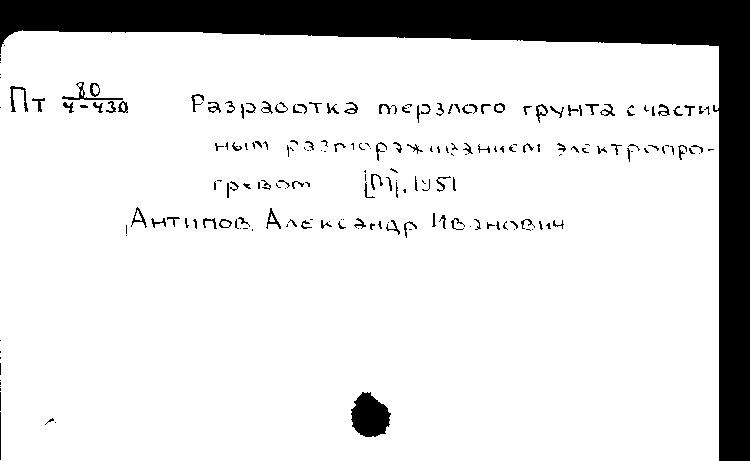 Пт 80/4-430 Разработка мерзлого грунта с частич
ным размораживанием электропро-
гревом [М], 1951
Антипов, Александр Иванович